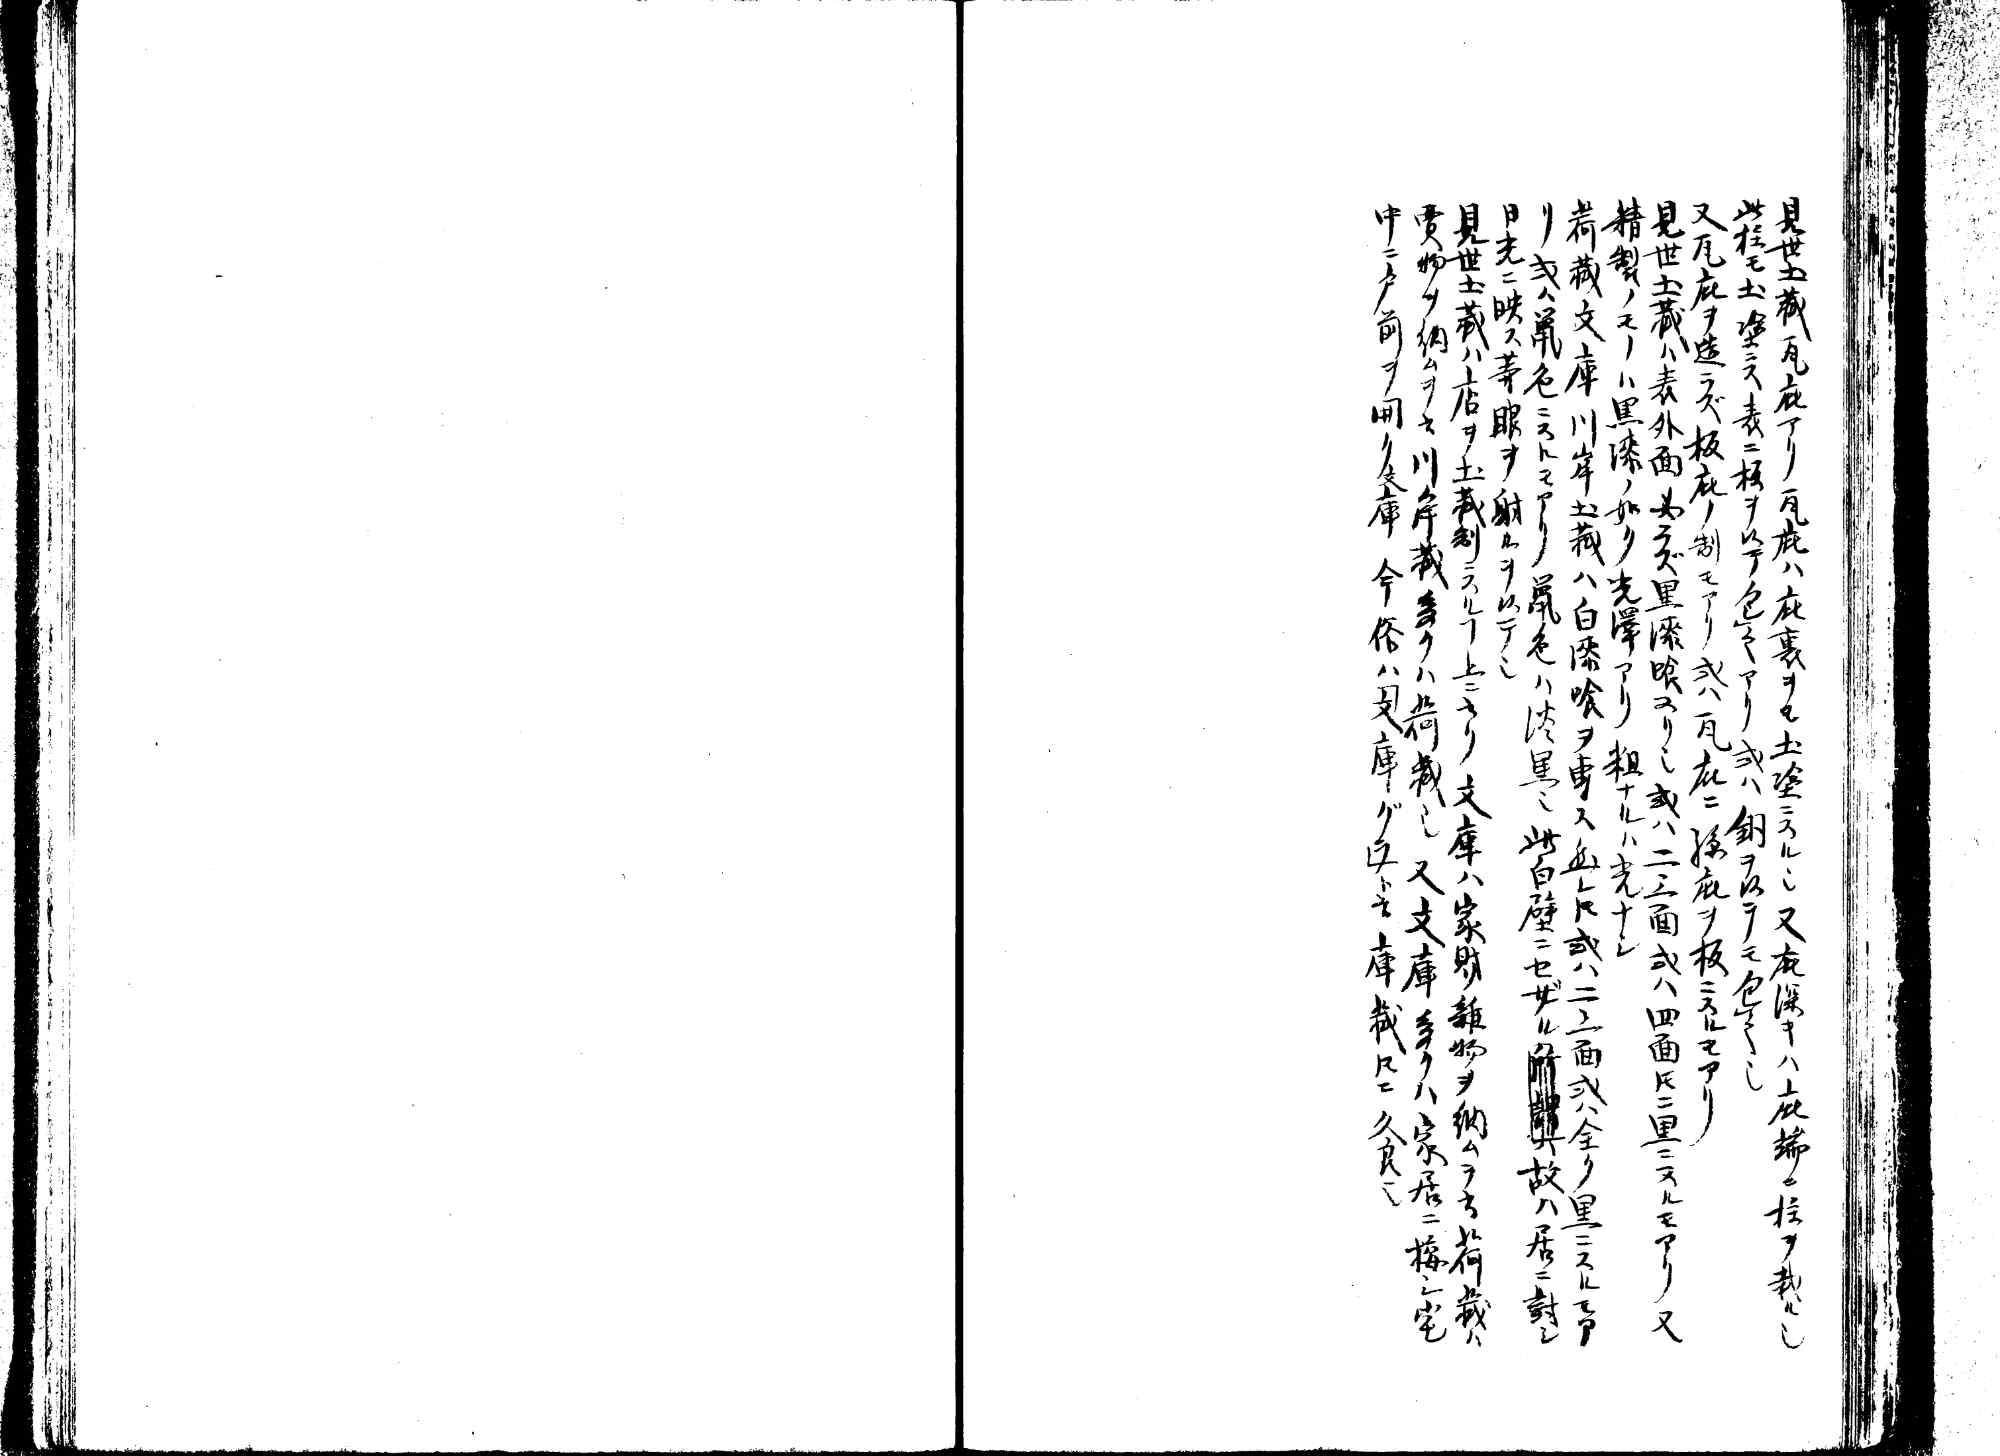 見世土蔵瓦庇アリ瓦庇ハ庇裏ヲモ土塗ニスル也又庇深キハ庇端ニ柱ヲ栽ル也
此柱モ土塗ニス表ニ板ヲ以テ包ムアリ或ハ銅ヲ以テモ包ム也
又瓦庇ヲ造ラズ板庇ノ制モアリ或ハ瓦庇ニ孫庇ヲ板ニスルモアリ
見世土蔵ハ表外面必ラズ黒漆喰ヌリ也或ハ二三面或ハ四面トモニ黒ニスルモアリ又
精製ノモノハ黒漆ノ如ク光澤アリ粗ナルハ光ナシ
荷蔵文庫川岸土蔵ハ白漆喰ヲ専ス然レ𪜈或ハ二三面或ハ全ク黒ニスルモア
リ或ハ鼠色ニスルモアリ鼠色ハ淡黒也此白壁ニセザル故ハ居ニ對シ
日光ニ映ス等眼ヲ射ルヲ以テ也
見世土蔵ハ店ヲ土蔵制ニスルヿ上ニ云リ文庫ハ家財雑物ヲ納ムヲ云荷蔵ハ
賣物ヲ納ムヲ云川岸蔵多クハ荷蔵也又文庫多クハ家居ニ接シ宅
中ニ戸前ヲ開ク文庫今俗ハ文庫グラト云庫蔵𪜈ニ久良也